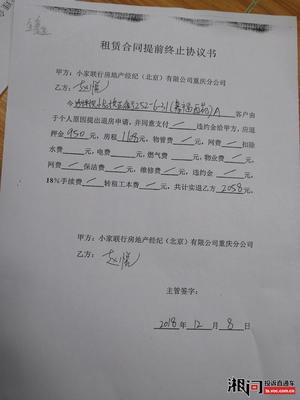 租赁合同提前终止协议书
甲方：小家联行房地产经纪（北京）有限公司重庆分公司
乙方：
今 252-6-21 A 客户由
于个人原因提出退房申请，并同意支付 / 违约金给甲方，应退
押金 950 元，房租 1108 元，物管费 / 元，网费 / 扣除
水费 元，电费 元，燃气费 元，物业费 / 元，
网费 / 保洁费 / 元，维修费 / 元，违约金 / 元，
18%手续费 / 转租工本费 / 元，共计实退乙方 2058 元。
甲方：小家联行房地产经纪（北京）有限公司重庆分公司
乙方：
主管签字：
2018 年 12 月 8 日
湘问 投诉直通车
ts.voc.com.cn